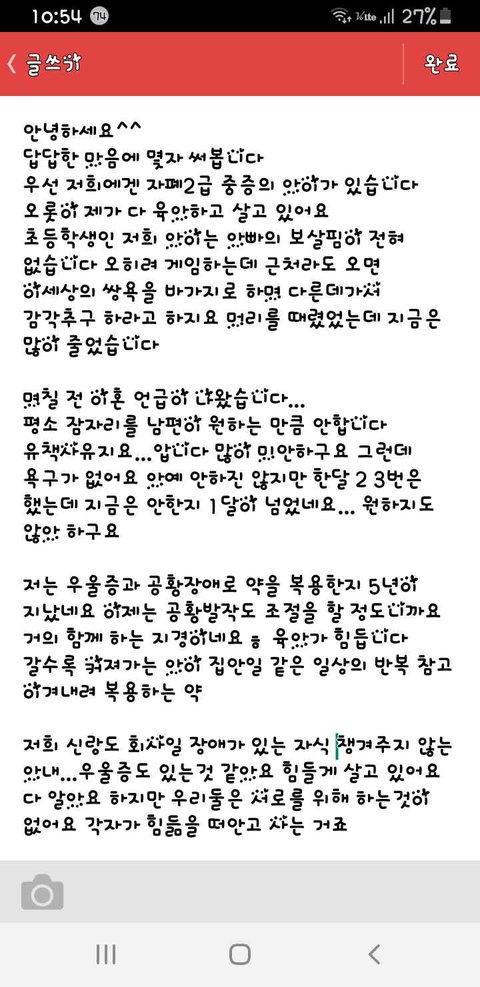 10:54 74 27%
글쓰기
완료
안녕하세요^^
답답한 마음에 몇자 써봅니다
우선 저희에겐 자폐2급 중증의 아이가 있습니다
오롯이 제가 다 육아하고 살고 있어요
초등학생인 저희 아이는 아빠의 보살핌이 전혀
없습니다 오히려 게임하는데 근처라도 오면
이세상의 쌍욕을 바가지로 하며 다른데가서
감각추구 하라고 하지요 머리를 때렸었는데 지금은
많이 줄었습니다
며칠 전 이혼 언급이 나왔습니다...
평소 잠자리를 남편이 원하는 만큼 안합니다
유책사유지요...압니다 많이 미안하구요 그런데
욕구가 없어요 아예 안하진 않지만 한달 2 3번은
했는데 지금은 안한지 1달이 넘었네요... 원하지도
않아 하구요
저는 우울증과 공황장애로 약을 복용한지 5년이
지났네요 이제는 공황발작도 조절을 할 정도니까요
거의 함께 하는 지경이네요 ㅎ 육아가 힘듭니다
갈수록 커져가는 아이 집안일 같은 일상의 반복 참고
이겨내려 복용하는 약
저희 신랑도 회사일 장애가 있는 자식 챙겨주지 않는
아내...우울증도 있는것 같아요 힘들게 살고 있어요
다 알아요 하지만 우리둘은 서로를 위해 하는것이
없어요 각자가 힘듦을 떠안고 사는 거죠